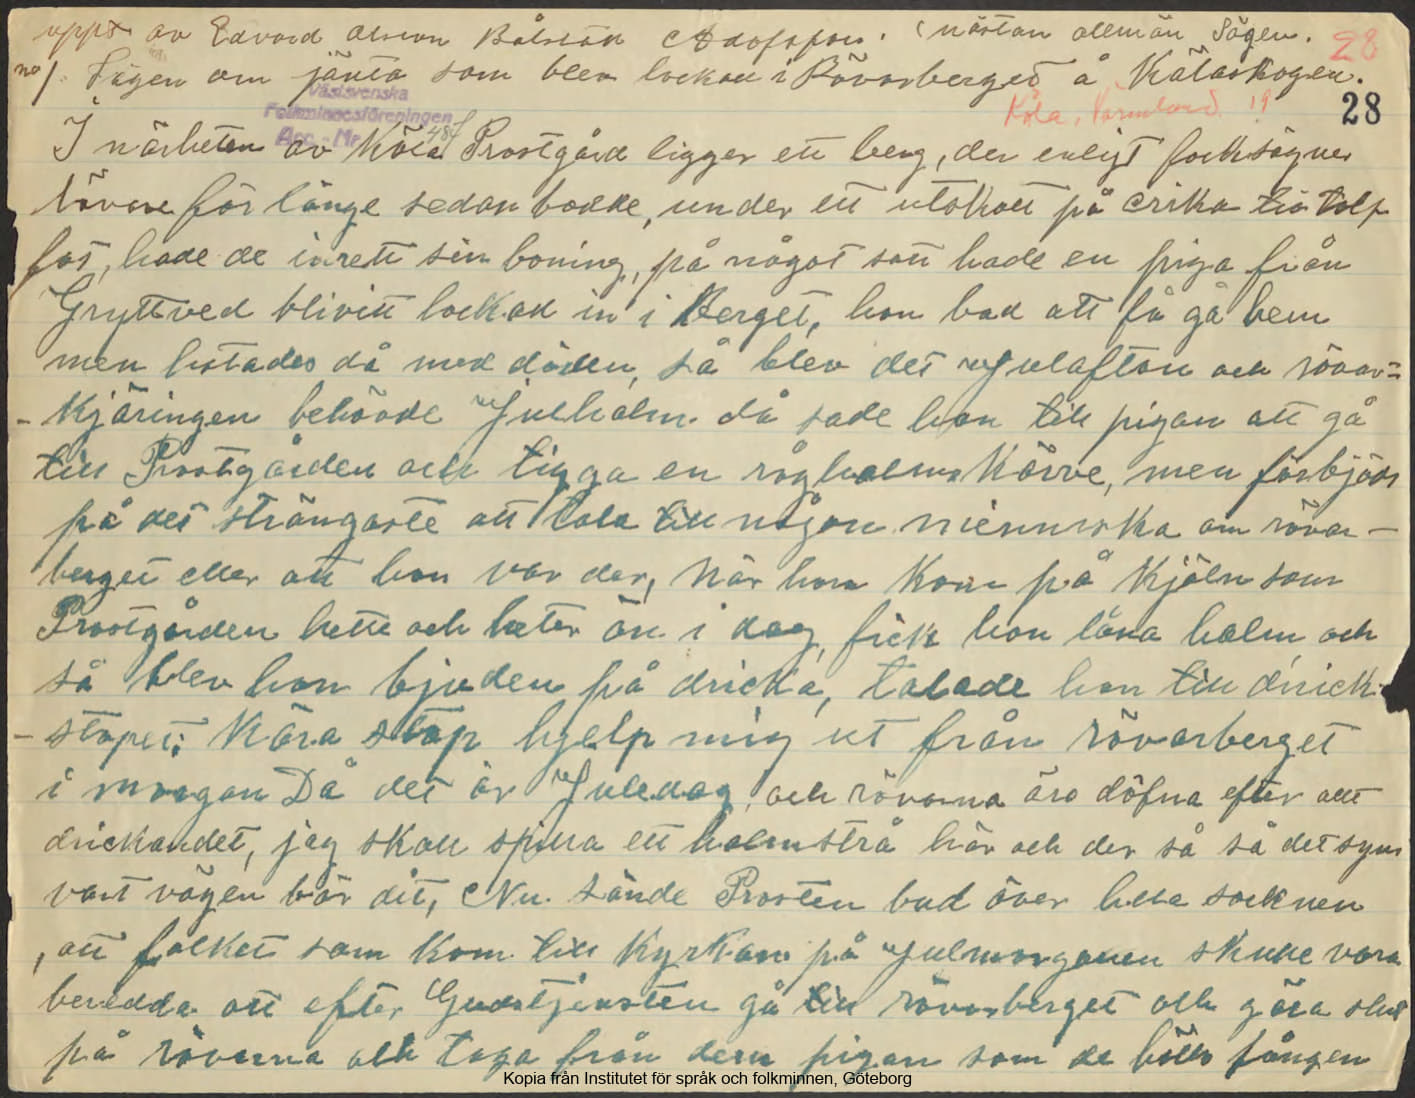 uppt av Edvard Olsson Bålstad Adolfsfors. (nästan allmän Sägen.
28
no 1. Sägen om jänta som blev lockad i Rövarberget å Kölaskogen.
Västsvenska
Folkminnesföreningen
Acc.-Nr 487
Köla, Värmland
28
I närheten av Köla Prostgård ligger ett berg, der enligt folksägner
rövare för länge sedan bodde, under ett utskott på cirka tio tolf
fot, hade de inrett sin boning, på något sätt hade en piga från
Gryttved blivitt lockad in i Berget, hon bad att få gå hem
men hotades då med döden, så blev det Julafton och rövar=
- Kjäringen behövde Julhalm. då sade hon till pigan att gå
till Prostgården och tigga en råghalms Kärve, men förbjöds
på det strängaste att tala till någon menniska om rövar-
berget eller att hon var der, När hon Kom på Kjöln som
Prostgården hette och heter än i dag, fick hon låna halm och
så blev hon bjuden på dricka, talade hon till drick
- stopet: Kära stop hjelp mig ut från rövarberget
i morgon Då det är Juledag, och rövarna äro döfva efter allt
drickandet, jag skall spilla ett halmstrå här och der så så det syns
vart vägen bär dit, Nu sände Prosten bud över hela socknen
, att folket som Kom till Kyrkan på Julmorgonen skulle vara
beredda att efter Gudstjensten gå till rövarberget och göra slut
på rövarna och taga från dem pigan som de höllo fången
Kopia från Institutet för språk och folkminnen, Göteborg